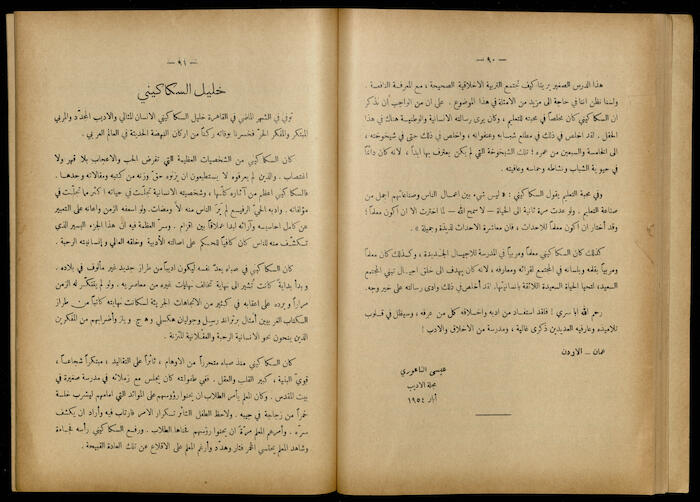 — ٩٠ —
هذا الدرس الصغير يرينا كيف تجتمع التربية الاخلاقية الصحيحة ، مع المعرفة النافعة .
ولسنا نظن اننا في حاجة الى مزيد من الامثلة في هذا الموضوع . على ان من الواجب ان نذكر
ان السكاكيني كان مخلصاً في محبته للتعليم ، وكان يرى رسالته الانسانية والوطنية هناك في هذا
الحقل . لقد اخلص في ذلك في مطلع شبابه وعنفوانه ، واخلص في ذلك حتى في شيخوخته ،
الى الخامسة والسبعين من عمره ؛ تلك الشيخوخة التي لم يكن يعترف بها ابداً ، لانه كان دائماً
في حيوية الشباب ونشاطه وحماسه وعافيته .
وفي محبة التعليم يقول السكاكيني : « ليس شيء بين اعمال الناس وصناعاتهم اجمل من
صناعة التعليم . ولو عدت مرة ثانية الى الحياة — لا سمح الله — لما اخترت الا ان اكون معلماً ؛
وقد اختار ان اكون معلماً للاحداث ، فان معاشرة الاحداث لذيذة وجميلة » .
كذلك كان السكاكيني معلماً ومربياً في المدرسة للاجيال الجديدة ، وكذلك كان معلماً
ومربياً بقلمه وبلسانه في المجتمع لقرائه ومعارفه ، لانه كان يهدف الى خلق اجيال تبني المجتمع
السعيد ، لتحيا الحياة السعيدة اللائقة بانسانيتها . لقد اخلص في ذلك وادى رسالته على خير وجه .
رحم الله ابا سري ! فلقد استفاد من ادبه واخلاقه كل من عرفه ، وسيظل في قلوب
تلاميذه وعارفيه العديدين ذكرى غالية ، ومدرسة من الاخلاق والادب !
عمان — الاردن
عيسى الناعوري
مجلة الاديب
أيار ١٩٥٤
— ٩١ —
خليل السكاكيني
توفي في الشهر الماضي في القاهرة خليل السكاكيني الانسان المثالي والاديب المجدّد والمربي
المبتكر والمفكر الحرّ فخسرنا بوفاته ركناً من اركان النهضة الحديثة في العالم العربي .
كان السكاكيني من الشخصيات العظيمة التي تفرض الحب والاعجاب بلا قهر ولا
اغتصاب . والذين لم يعرفوه لا يستطيعون ان يزنوه حق وزنه من كتبه ومقالاته وحدها .
فالسكاكيني اعظم من آثاره كلّها ، وشخصيته الانسانية تجلّت في حياته اكثر مما تجلّت في
مؤلفاته . وادبه الحيّ الرفيع لم يَرَ الناس منه الا ومضات . ولو اسعفه الزمن واعانه على التعبير
عن كامل احاسيسه وآرائه لبدا عملاقاً بين اقزام . وسر العظمة فيه ان هذا الجزء اليسير الذي
تكشّف منه للناس كان كافياً للحكم على اصالته الأدبية وخلقه العالي وانسانيته الرحبة .
كان السكاكيني في صباه يعدّ نفسه ليكون اديباً من طراز جديد غير مألوف في بلاده .
وبدأ بداية كانت تُشير الى نهاية تخالف نهايات غيره من معاصريه . ولو لم يتنكّر له الزمن
مراراً ويرده على اعقابه في كثير من الاتجاهات الحرية لكانت نهايته كاتباً من طراز
الكتّاب الغربيين أمثال برتراند رسل وجوليان هكسلي وهج ويلز وأضرابهم من المفكرين
الذين ينحون نحو الانسانية الرحبة والعقلانية المتزنة .
كان السكاكيني منذ صباه متحرراً من الاوهام ، ثائراً على التقاليد ، مبتكراً شجاعاً ،
قويّ البنية ، كبير القلب والعقل . ففي طفولته كان يجلس مع زملائه في مدرسة صغيرة في
بيت المقدس . وكان المعلم يأمر الطلاب ان يحنوا رؤوسهم على الموائد التي امامهم ليشرب خلسة
خمراً من زجاجة في جيبه . ولاحظ الطفل الثائر تكرار الامر فارتاب فيه وأراد ان يكشف
سرّه . وأمرهم المعلم مرّة ان يحنوا رؤسهم فحناها الطلاب . ورفع السكاكيني رأسه فجاءة
وشاهد المعلم يحتسي الخمر فثار وهدّد وأرغم المعلم على الاقلاع عن تلك العادة القبيحة .